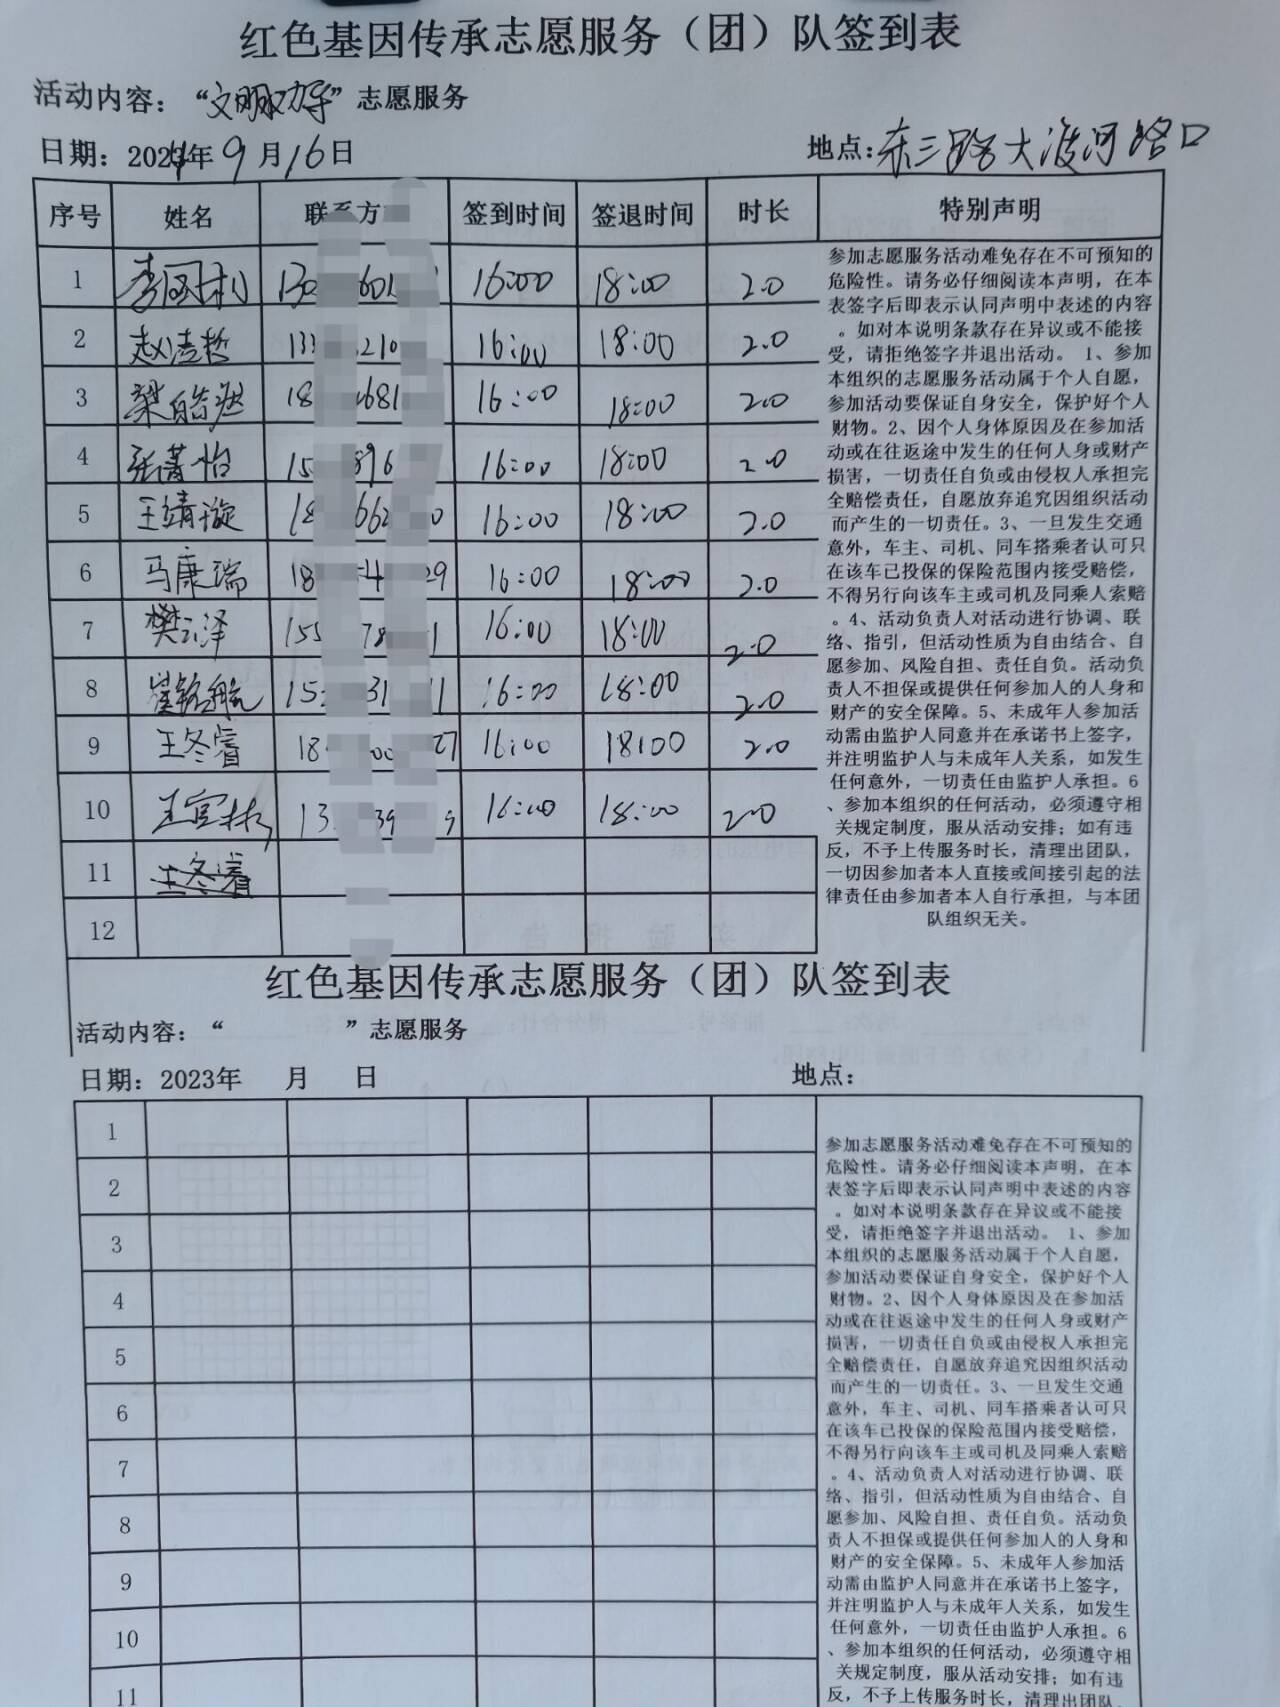 红色基因传承志愿服务（团）队签到表
活动内容：“文明劝导”志愿服务
日期：2024年9月16日 地点:东三路大渡河路口
序号 姓名 联系方 签到时间 签退时间 时长 特别声明
1 李国利 16:00 18:00 2.0
2 赵浩哲 133 210 16:00 18:00 2.0
3 梁皓 18 681 16:00 18:00 2.0
4 张菁怡 15 896 16:00 18:00 2.0
5 王靖璇 18 662 0 16:00 18:00 2.0
6 马康瑞 18 4 29 16:00 18:00 2.0
7 樊云泽 155 78 1 16:00 18:00 2.0
8 崔铭航 15 31 1 16:00 18:00 2.0
9 王冬睿 18 00 27 16:00 18:00 2.0
10 王官林 13 39 9 16:00 18:00 2.0
11 王冬睿
12
参加志愿服务活动难免存在不可预知的
危险性。请务必仔细阅读本声明，在本
表签字后即表示认同声明中表述的内容
。如对本说明条款存在异议或不能接
受，请拒绝签字并退出活动。 1、参加
本组织的志愿服务活动属于个人自愿，
参加活动要保证自身安全，保护好个人
财物。2、因个人身体原因及在参加活
动或在往返途中发生的任何人身或财产
损害，一切责任自负或由侵权人承担完
全赔偿责任，自愿放弃追究因组织活动
而产生的一切责任。3、一旦发生交通
意外，车主、司机、同车搭乘者认可只
在该车已投保的保险范围内接受赔偿，
不得另行向该车主或司机及同乘人索赔
。4、活动负责人对活动进行协调、联
络、指引，但活动性质为自由结合、自
愿参加、风险自担、责任自负。活动负
责人不担保或提供任何参加人的人身和
财产的安全保障。5、未成年人参加活
动需由监护人同意并在承诺书上签字，
并注明监护人与未成年人关系，如发生
任何意外，一切责任由监护人承担。6
、参加本组织的任何活动，必须遵守相
关规定制度，服从活动安排；如有违
反，不予上传服务时长，清理出团队，
一切因参加者本人直接或间接引起的法
律责任由参加者本人自行承担，与本团
队组织无关。
红色基因传承志愿服务（团）队签到表
活动内容：“ ”志愿服务
日期：2023年 月 日 地点：
1
2
3
4
5
6
7
8
9
10
11
参加志愿服务活动难免存在不可预知的
危险性。请务必仔细阅读本声明，在本
表签字后即表示认同声明中表述的内容
。如对本说明条款存在异议或不能接
受，请拒绝签字并退出活动。 1、参加
本组织的志愿服务活动属于个人自愿，
参加活动要保证自身安全，保护好个人
财物。2、因个人身体原因及在参加活
动或在往返途中发生的任何人身或财产
损害，一切责任自负或由侵权人承担完
全赔偿责任，自愿放弃追究因组织活动
而产生的一切责任。3、一旦发生交通
意外，车主、司机、同车搭乘者认可只
在该车已投保的保险范围内接受赔偿，
不得另行向该车主或司机及同乘人索赔
。4、活动负责人对活动进行协调、联
络、指引，但活动性质为自由结合、自
愿参加、风险自担、责任自负。活动负
责人不担保或提供任何参加人的人身和
财产的安全保障。5、未成年人参加活
动需由监护人同意并在承诺书上签字，
并注明监护人与未成年人关系，如发生
任何意外，一切责任由监护人承担。6
、参加本组织的任何活动，必须遵守相
关规定制度，服从活动安排；如有违
反，不予上传服务时长，清理出团队，